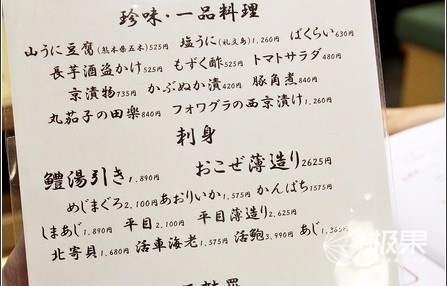 珍味・一品料理
山うに豆腐(熊本県五木)525円 塩うに(礼文島)1,260円 ばくらい630円
長芋酒盗かけ525円 もずく酢525円 トマトサラダ480円
京漬物735円 かぶぬか漬420円 豚角煮840円
丸茄子の田楽840円 フォワグラの西京漬け1,260円
刺身
鱧湯引き1,890円 おこぜ薄造り2625円
めじまぐろ2,100円 あおりいか1,575円 かんぱち1575円
しまあじ1,890円 平目2,100円 平目薄造り2,625円
北寄貝1,680円 活車海老1,575円 活鮑3,990円 あじ
极果